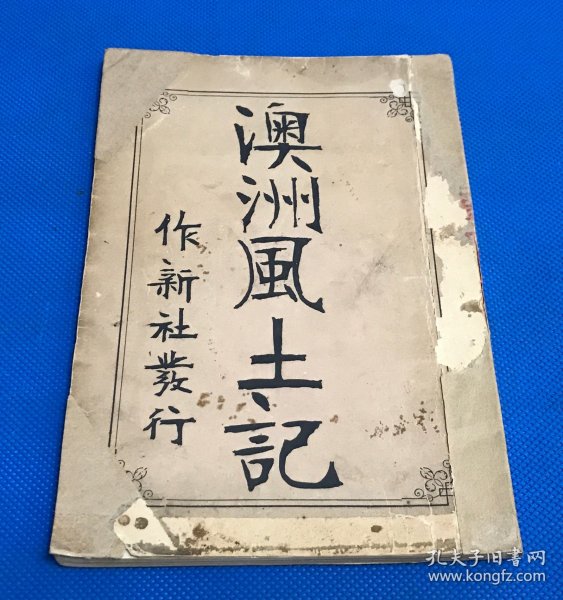 澳洲風土記
作新社發行
孔夫子旧书网
www.kongfz.com